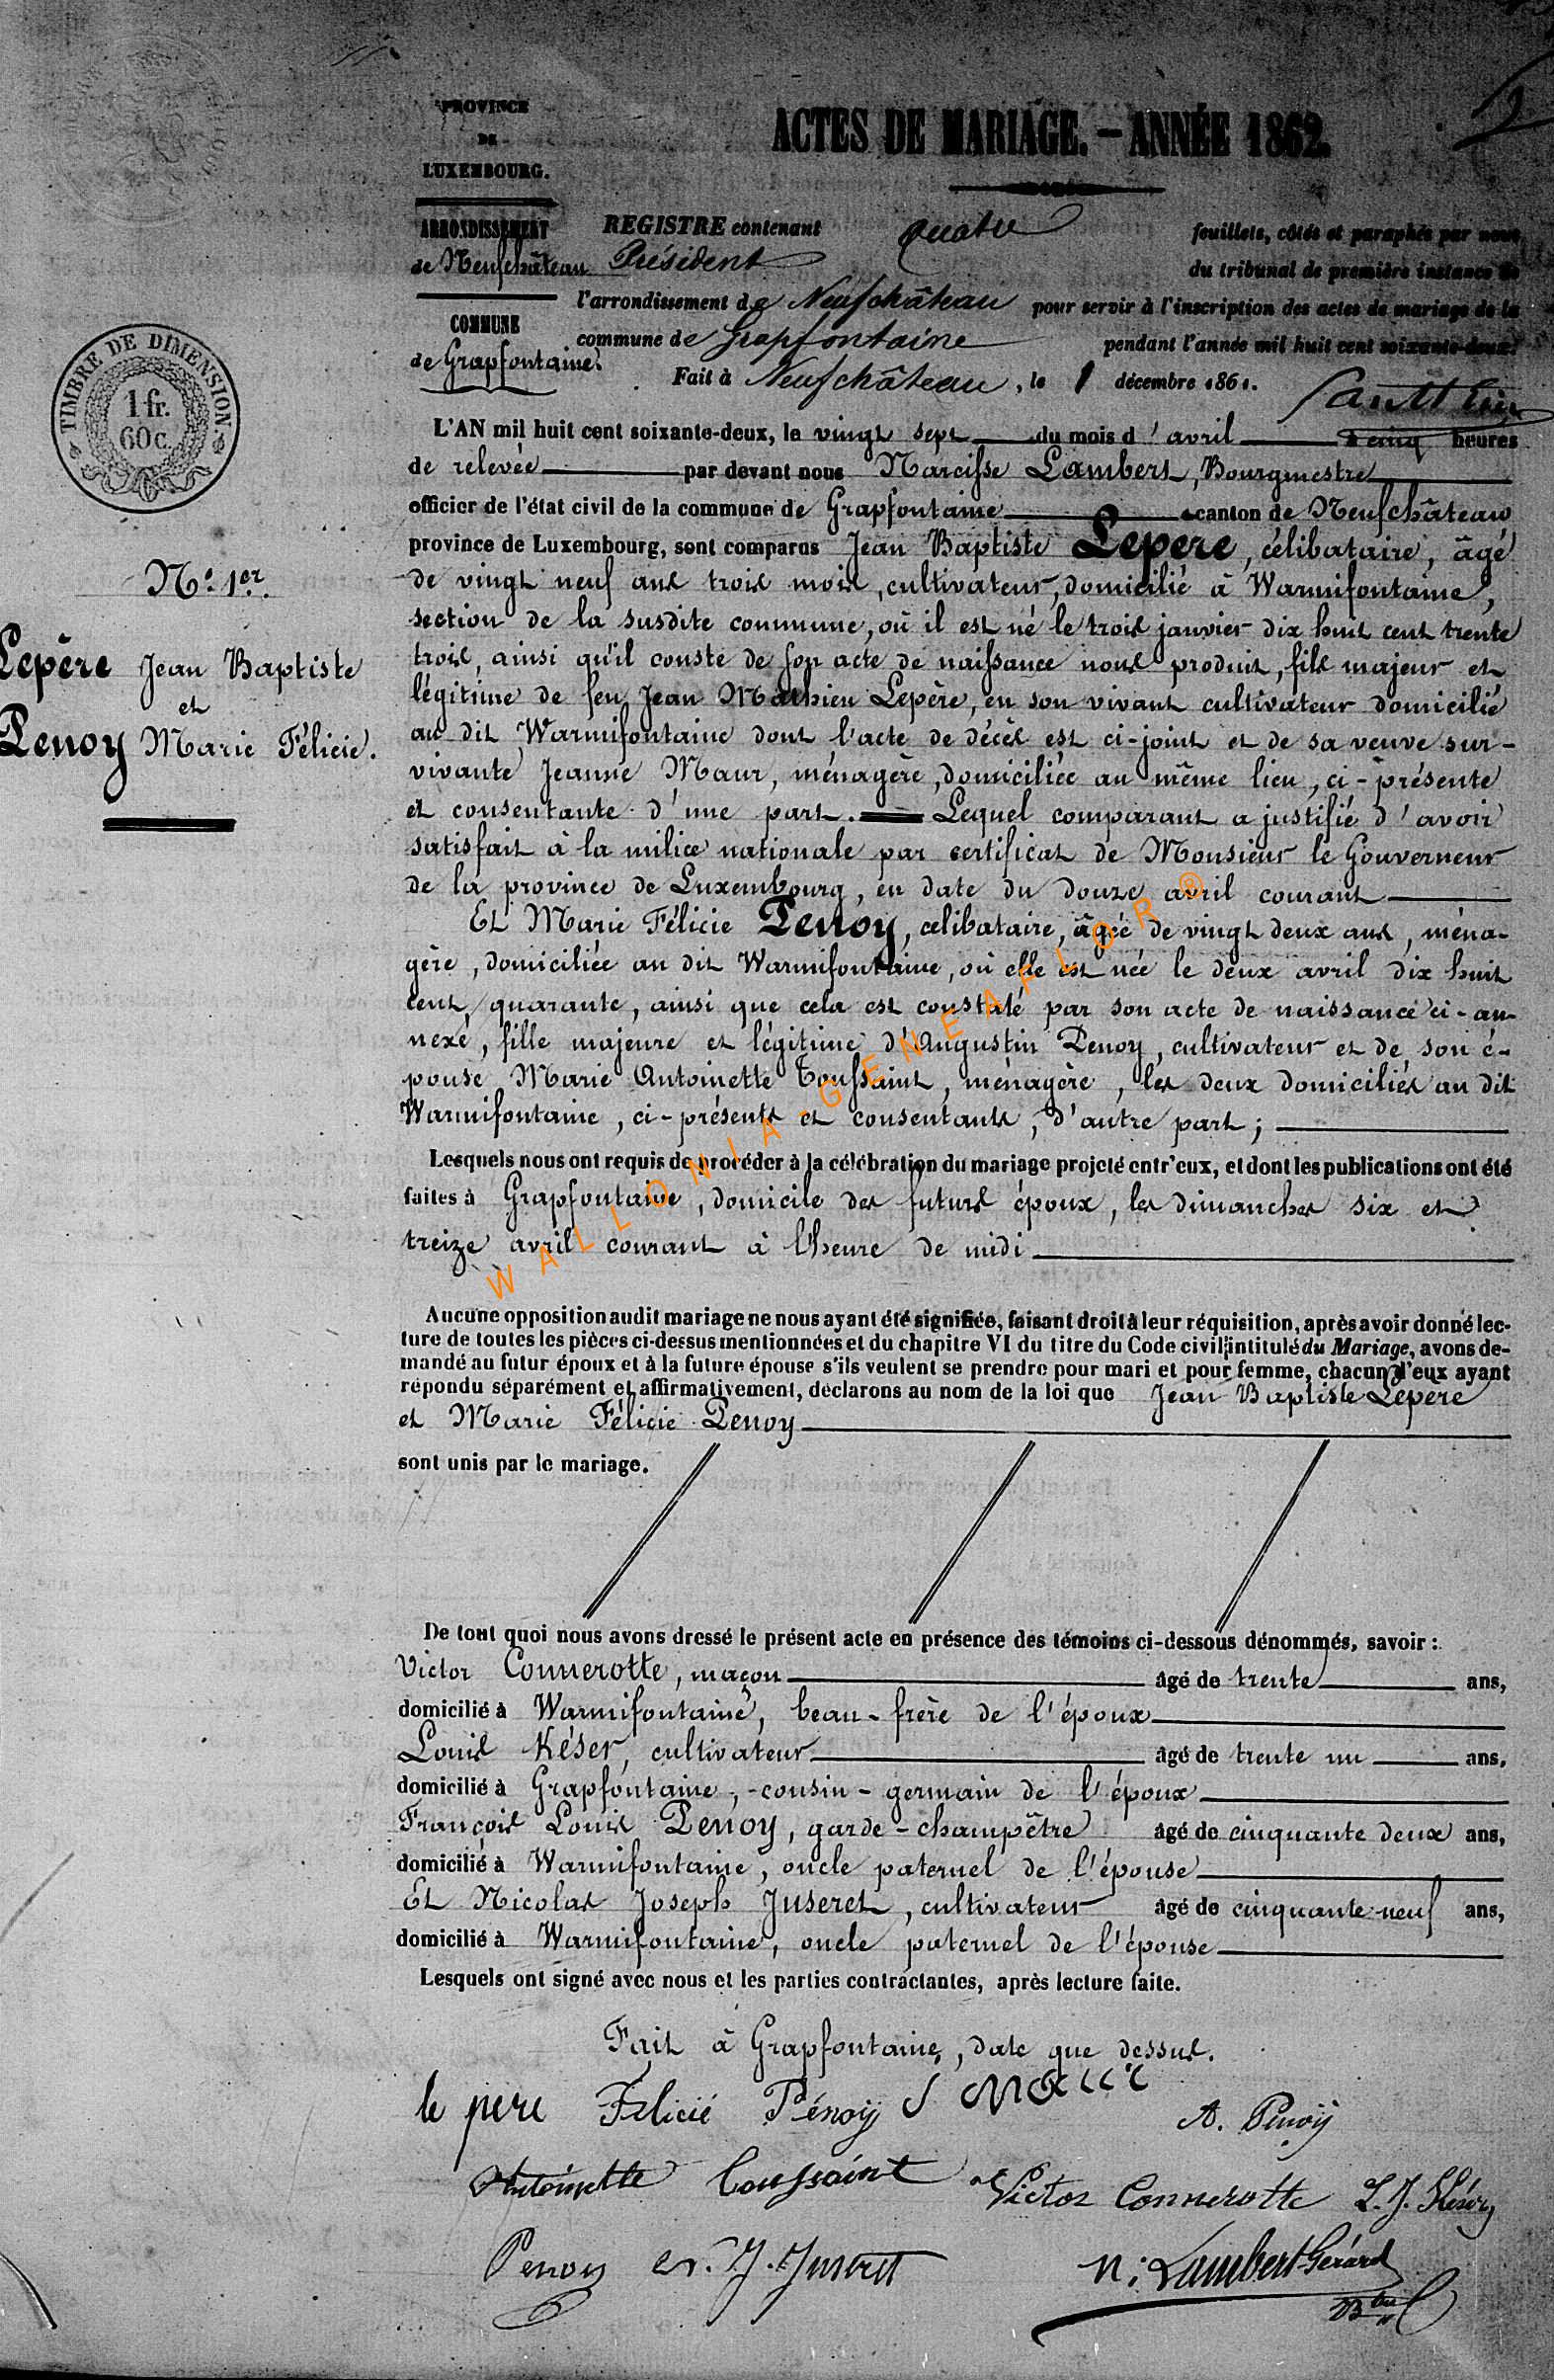 PROVINCE
DE
LUXEMBOURG.
ACTES DE MARIAGE. — ANNÉE 1862.
ARRONDISSEMENT
de Neufchâteau
COMMUNE
de Grapfontaine
REGISTRE contenant quatre feuillets, côtés et paraphés par nous
Président du tribunal de première instance de
l'arrondissement de Neufchâteau pour servir à l'inscription des actes de mariage de la
commune de Grapfontaine pendant l'année mil huit cent soixante-deux.
Fait à Neufchâteau, le 1 décembre 1861.
TIMBRE DE DIMENSION
1 fr.
60 c.
N.º 1er.
Lepère Jean Baptiste
et
Penoy Marie Félicie.
L'AN mil huit cent soixante-deux, le vingt sept du mois d'avril à cinq heures
de relevée par devant nous Narcisse Lambert, Bourgmestre
officier de l'état civil de la commune de Grapfontaine canton de Neufchâteau
province de Luxembourg, sont comparus Jean Baptiste Lepère, célibataire, âgé
de vingt neuf ans trois mois, cultivateur, domicilié à Warmifontaine,
section de la susdite commune, où il est né le trois janvier dix huit cent trente
trois, ainsi qu'il conste de son acte de naissance nous produit, fils majeur et
légitime de feu Jean Mathieu Lepère, en son vivant cultivateur domicilié
au dit Warmifontaine dont l'acte de décès est ci-joint et de sa veuve sur-
vivante Jeanne Maur, ménagère, domiciliée au même lieu, ci-présente
et consentante d'une part. Lequel comparant a justifié d'avoir
satisfait à la milice nationale par certificat de Monsieur le Gouverneur
de la province de Luxembourg, en date du douze avril courant
Et Marie Félicie Penoy, célibataire, âgée de vingt deux ans, ména-
gère, domiciliée au dit Warmifontaine, où elle est née le deux avril dix huit
cent quarante, ainsi que cela est constaté par son acte de naissance ci-an-
nexé, fille majeure et légitime d'Augustin Penoy, cultivateur et de son é-
pouse Marie Antoinette Toussaint, ménagère, les deux domiciliés au dit
Warmifontaine, ci-présents et consentants, d'autre part;
Lesquels nous ont requis de procéder à la célébration du mariage projeté entr'eux, et dont les publications ont été
faites à Grapfontaine, domicile des futurs époux, les dimanches six et
treize avril courant à l'heure de midi
WALLONIA-GENEAFLOR®
Aucune opposition audit mariage ne nous ayant été signifiée, faisant droit à leur réquisition, après avoir donné lec-
ture de toutes les pièces ci-dessus mentionnées et du chapitre VI du titre du Code civil, intitulé du Mariage, avons de-
mandé au futur époux et à la future épouse s'ils veulent se prendre pour mari et pour femme, chacun d'eux ayant
répondu séparément et affirmativement, déclarons au nom de la loi que Jean Baptiste Lepère
et Marie Félicie Penoy
sont unis par le mariage.
De tout quoi nous avons dressé le présent acte en présence des témoins ci-dessous dénommés, savoir :
Victor Connerotte, maçon âgé de trente ans,
domicilié à Warmifontaine, beau-frère de l'époux
Louis Késer, cultivateur âgé de trente un ans,
domicilié à Grapfontaine, cousin-germain de l'époux
François Louis Penoy, garde-champêtre âgé de cinquante deux ans,
domicilié à Warmifontaine, oncle paternel de l'épouse
Et Nicolas Joseph Juseret, cultivateur âgé de cinquante neuf ans,
domicilié à Warmifontaine, oncle paternel de l'épouse
Lesquels ont signé avec nous et les parties contractantes, après lecture faite.
Fait à Grapfontaine, date que dessus.
le pere Félicié Pénoy J A. Penoÿ
Antoinette Toussaint Victor Connerotte L. J. Késer
Penoy N. J. Juseret N: Lambert Gérard